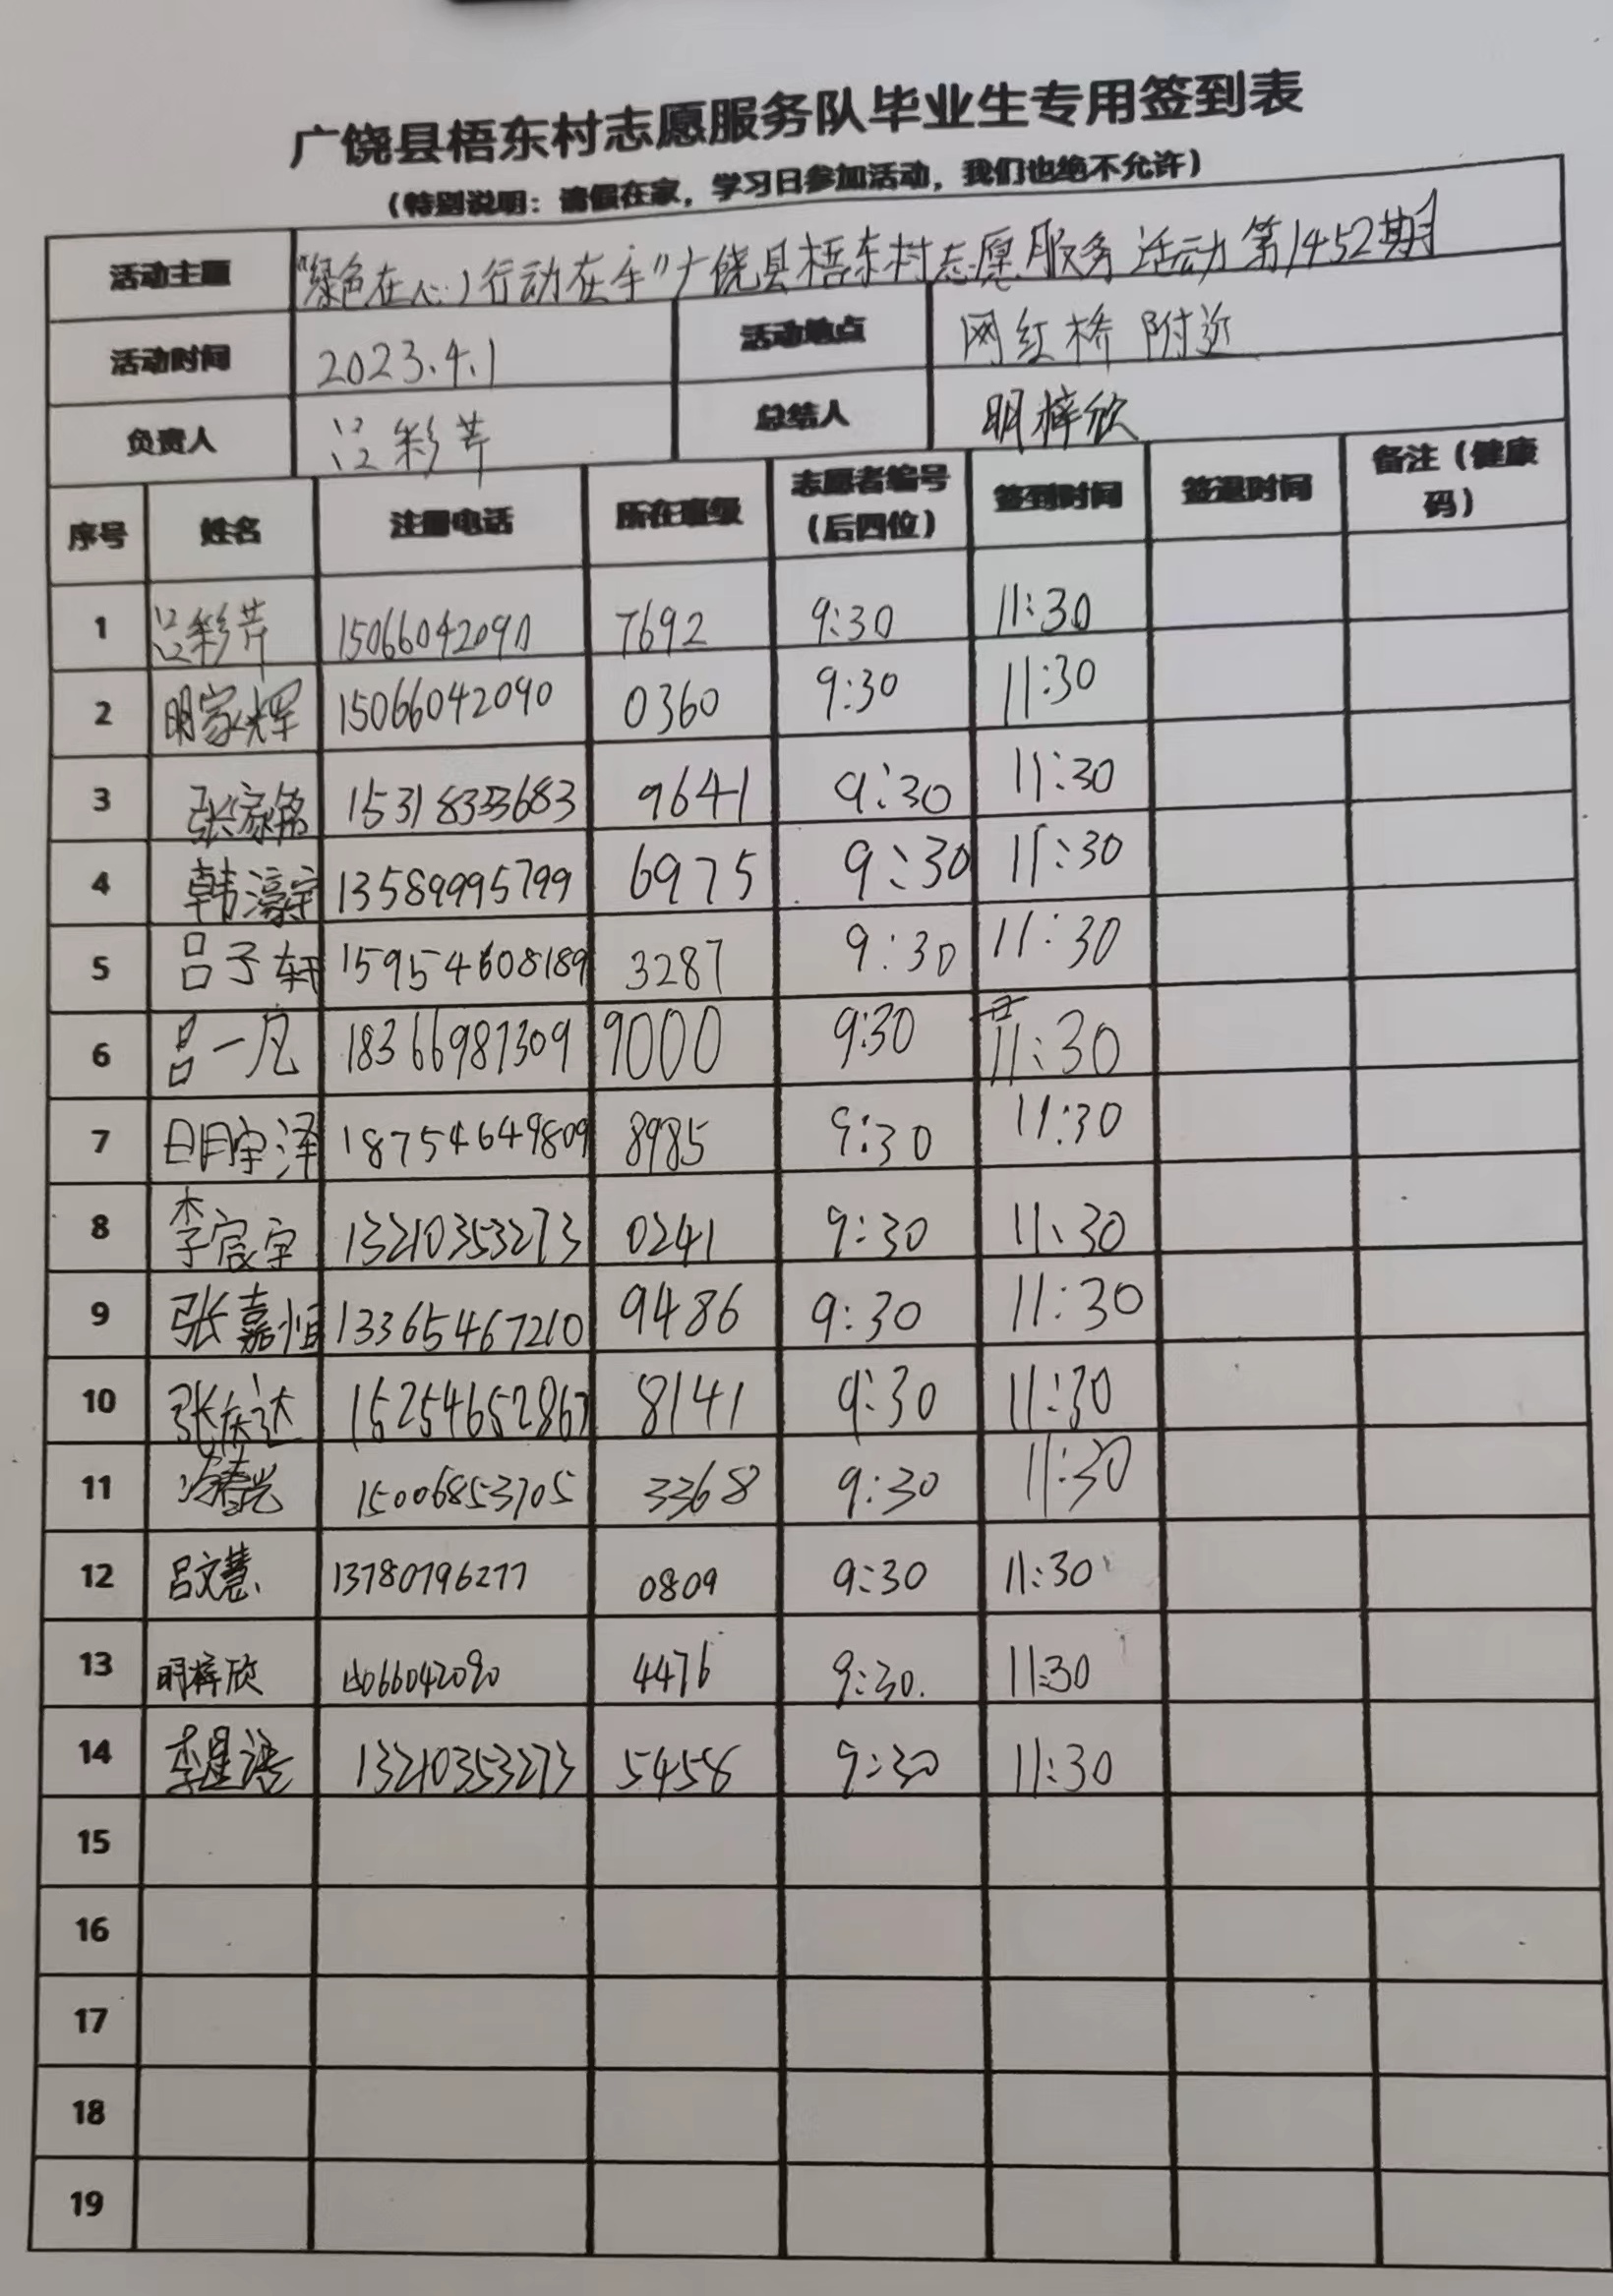 广饶县梧东村志愿服务队毕业生专用签到表
(特别说明：请假在家，学习日参加活动，我们也绝不允许)
活动主题 "绿色在心，行动在手"广饶县梧东村志愿服务活动第1452期
活动时间 2023.4.1 活动地点 网红桥附近
负责人 吕彩芹 总结人 明梓欣
序号 姓名 注册电话 所在班级 志愿者编号(后四位) 签到时间 签退时间 备注(健康码)
1 吕彩芹 15066042090 7692 9:30 11:30
2 明家辉 15066042090 0360 9:30 11:30
3 张家铭 15318333683 9641 9:30 11:30
4 韩濠宇 13589995799 6975 9:30 11:30
5 吕子轩 15954608189 3287 9:30 11:30
6 吕一凡 18366987309 9000 9:30 11:30
7 明宇泽 18754649809 8985 9:30 11:30
8 李宸宇 13210353273 0241 9:30 11:30
9 张嘉恒 13365467210 9486 9:30 11:30
10 张庆达 15254652867 8141 9:30 11:30
11 15006853705 3368 9:30 11:30
12 吕文慧 13780796277 0809 9:30 11:30
13 明梓欣 15066042090 4476 9:30 11:30
14 李星语 13210353273 5458 9:30 11:30
15
16
17
18
19